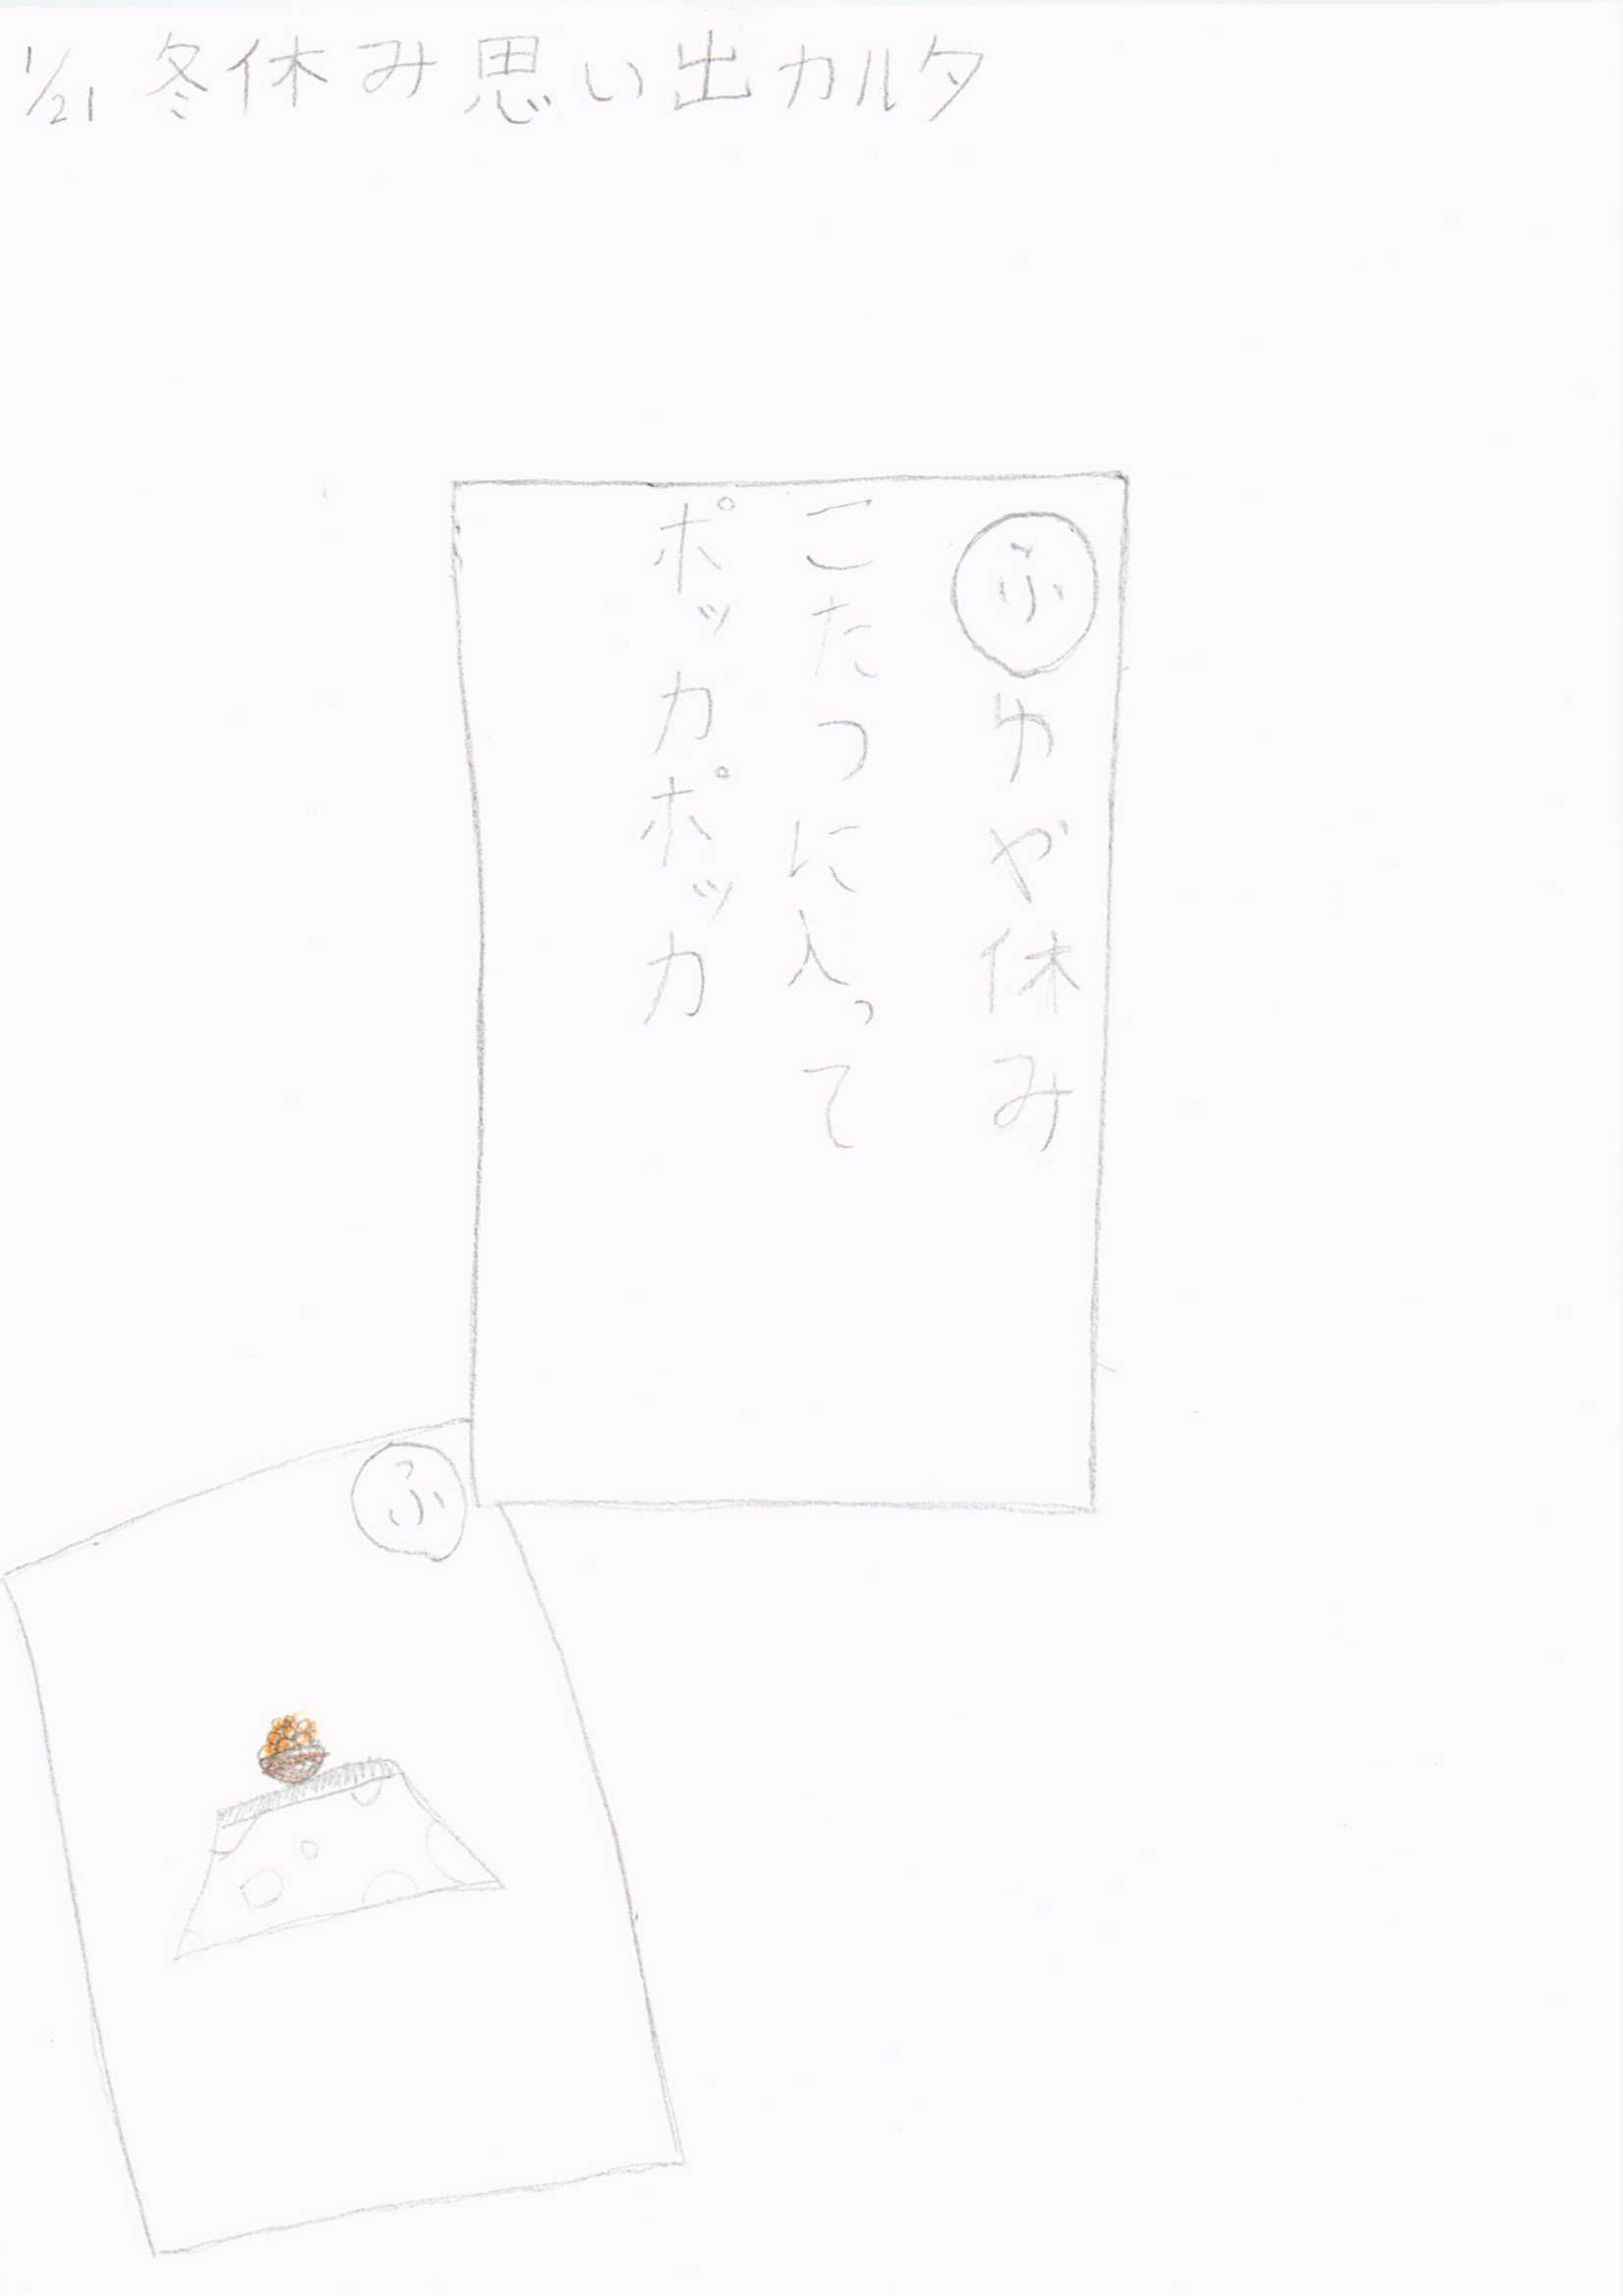 1/21 冬休み思い出カルタ
ふゆや休み
こたつに入って
ポッカポッカ
ふ